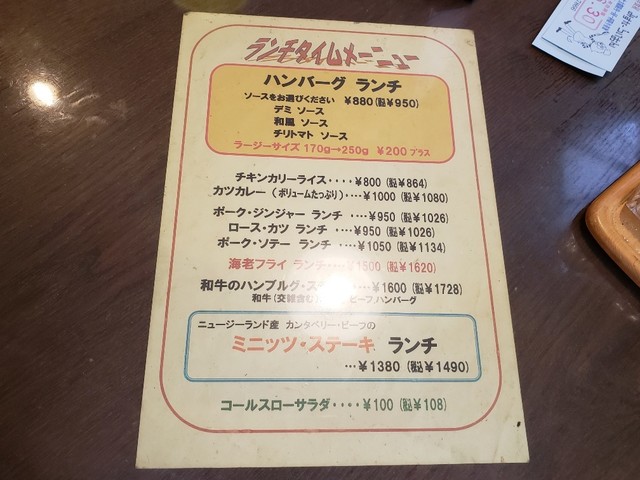 ランチタイムメーニュー
ハンバーグ ランチ
ソースをお選びください ¥880(税¥950)
デミ ソース
和風 ソース
チリトマト ソース
ラージーサイズ 170g→250g ¥200プラス
チキンカリーライス‥‥¥800 (税¥864)
カツカレー (ボリュームたっぷり)‥‥¥1000 (税¥1080)
ポーク・ジンジャー ランチ ‥‥¥950 (税¥1026)
ロース・カツ ランチ ‥‥¥950 (税¥1026)
ポーク・ソテー ランチ ‥‥¥1050 (税¥1134)
海老フライ ランチ‥‥¥1500 (税¥1620)
和牛のハンブルグ・ス ‥‥¥1600 (税¥1728)
和牛(交雑含む ビーフ)ハンバーグ
ニュージーランド産 カンタベリー・ビーフの
ミニッツ・ステーキ ランチ
…¥1380 (税¥1490)
コールスローサラダ‥‥¥100 (税¥108)